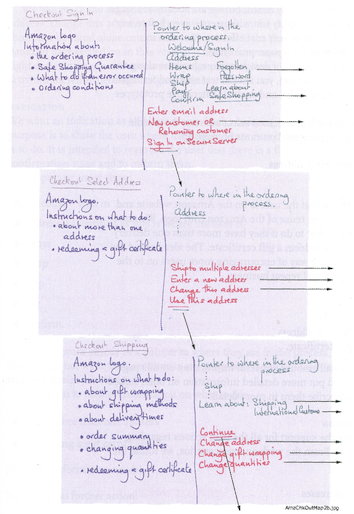 Checkout Sign In
Amazon Logo
Information about:
• the ordering process
• Safe Shopping Guarantee
• What to do if an error occured
• Ordering conditions
Pointer to where in the
ordering process.
Welcome/Sign In
Address
Items
Wrap
Ship
Pay
Confirm
Forgotten
Password
Learn about
Safe Shopping
Enter email address
New customer OR
Returning customer
Sign In on Secure Server
Checkout Select Address
Amazon Logo.
Instructions on what to do:
• about more than one
address
• redeeming a gift certificate
Pointer to where in the ordering
process.
Address
Ship to multiple adresses
Enter a new address
Change this address
Use this address
Checkout Shipping
Amazon Logo.
Instructions on what to do:
• about gift wrapping
• about shipping methods
• about delivery times
• order summary
• changing quantities
• redeeming a gift certificate
Pointer to where in the ordering
process
Ship
Learn about: Shipping
International Customs
Continue
Change address
Change gift wrapping
Change quantities
AmzChkOutMap2b.jpg